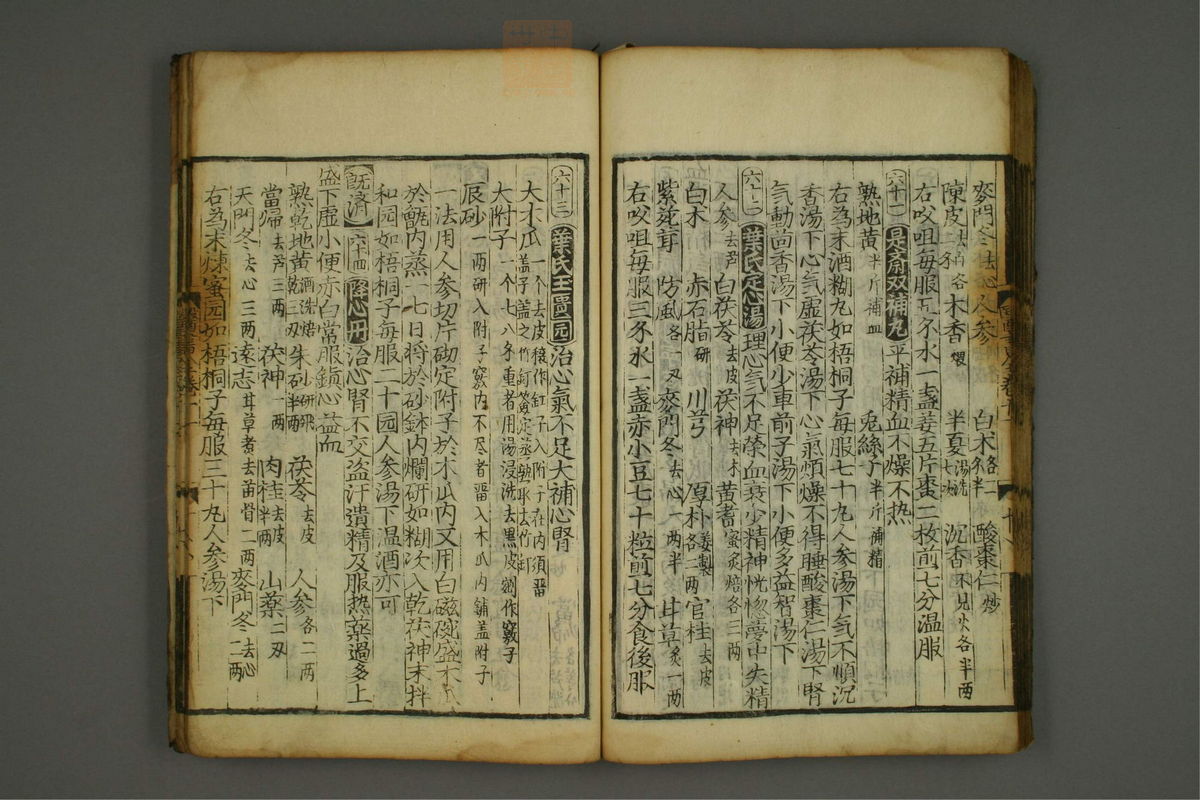 麥門冬去心 人參 白术各二 酸棗仁炒
陳皮 木香煨 半夏湯洗七次 沉香不見火各半兩
右㕮咀每服五錢水一盞姜五片棗二枚煎七分溫服
六十一 是齋双補丸 平補精血不燥不热
熟地黄半斤補血 兎絲子半斤補精
右為末酒糊丸如梧桐子每服七十丸人參湯下気不順沉
香湯下心気虚茯苓湯下心気煩燥不得睡酸棗仁湯下腎
気動茴香湯下小便少車前子湯下小便多益智湯下
六十二 葉氏定心湯 理心気不足荣血衰少精神恍惚夢中失精
人參去芦 白茯苓去皮 茯神去木 黄耆蜜炙焙各二兩
白术 赤石脂研 川芎 厚朴姜製各二兩 官桂去皮
紫菀茸 防風各一刄 麥門冬去心一兩半 甘草炙一兩
右㕮咀每服三錢水一盞赤小豆七十粒煎七分食後服
六十三 葉氏王啚园 治心氣不足大補心腎
大木瓜一个去皮穰作缸子入附子在内須畱盖子盖之竹釘簽定蒸熟取去竹釘
大附子一个七八錢重者用湯浸洗去黒皮剜作竅子
辰砂一两研入附子竅内不尽者畱入木瓜内鋪盖附子
一法用人參切片砌定附子於木瓜内又用白磁碗盛木瓜
於甑内蒸一七日将於砂鉢内爛研如糊次入乾茯神末拌
和园如梧桐子每服二十园人參湯下温酒亦可
既济 六十四 降心丹 治心腎不交盗汗遺精及服热薬過多上
盛下虚小便赤白常服鎮心益血
熟乾地黄酒洗焙乾三刄 朱砂研飛半兩 茯苓去皮 人參各二两
當帰去芦三两 茯神一两 肉桂去皮半两 山薬二刄
天門冬去心三两 遠志甘草煮去苗骨二两 麥門冬去心二两
右為末煉蜜园如梧桐子每服三十丸人參湯下